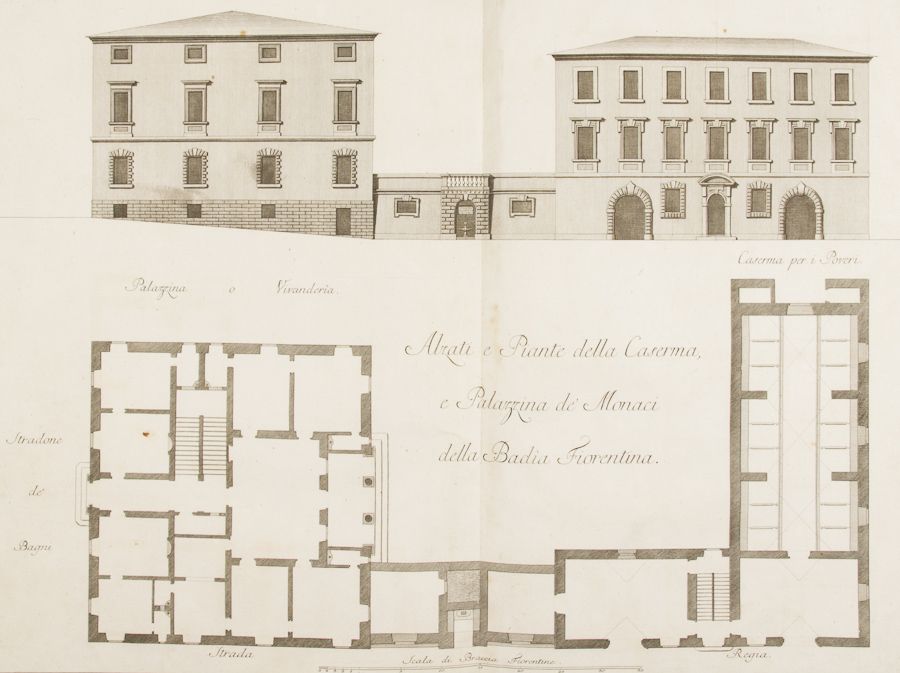 Caserma per i Poveri.
Palazzina o Vivanderia.
Alzati e Piante della Caserma,
e Palazzina de' Monaci
della Badia Fiorentina.
Stradone
de'
Bagni
Strada
Regia.
Scala di Braccia Fiorentine.